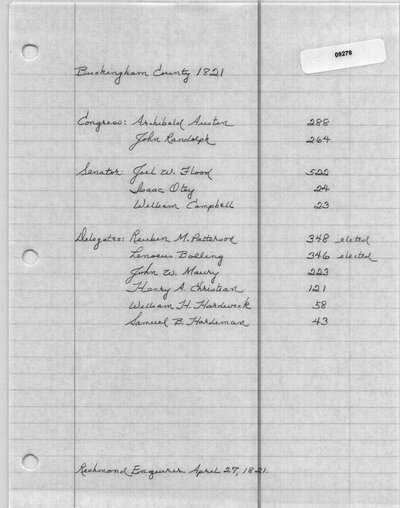 09278
Buckingham County 1821
Congress: Archibald Austin 288
John Randolph 264
Senator: Joel W. Flood 522
Isaac Otey 24
William Campbell 23
Delegates: Reuben M. Patterson 348 eleted
Lenoeus Bolling 346 elected
John W. Maury 223
Henry A. Christian 121
William H. Hardwick 58
Samuel B. Hardiman 43
Richmond Enquirer, April 27, 1821.